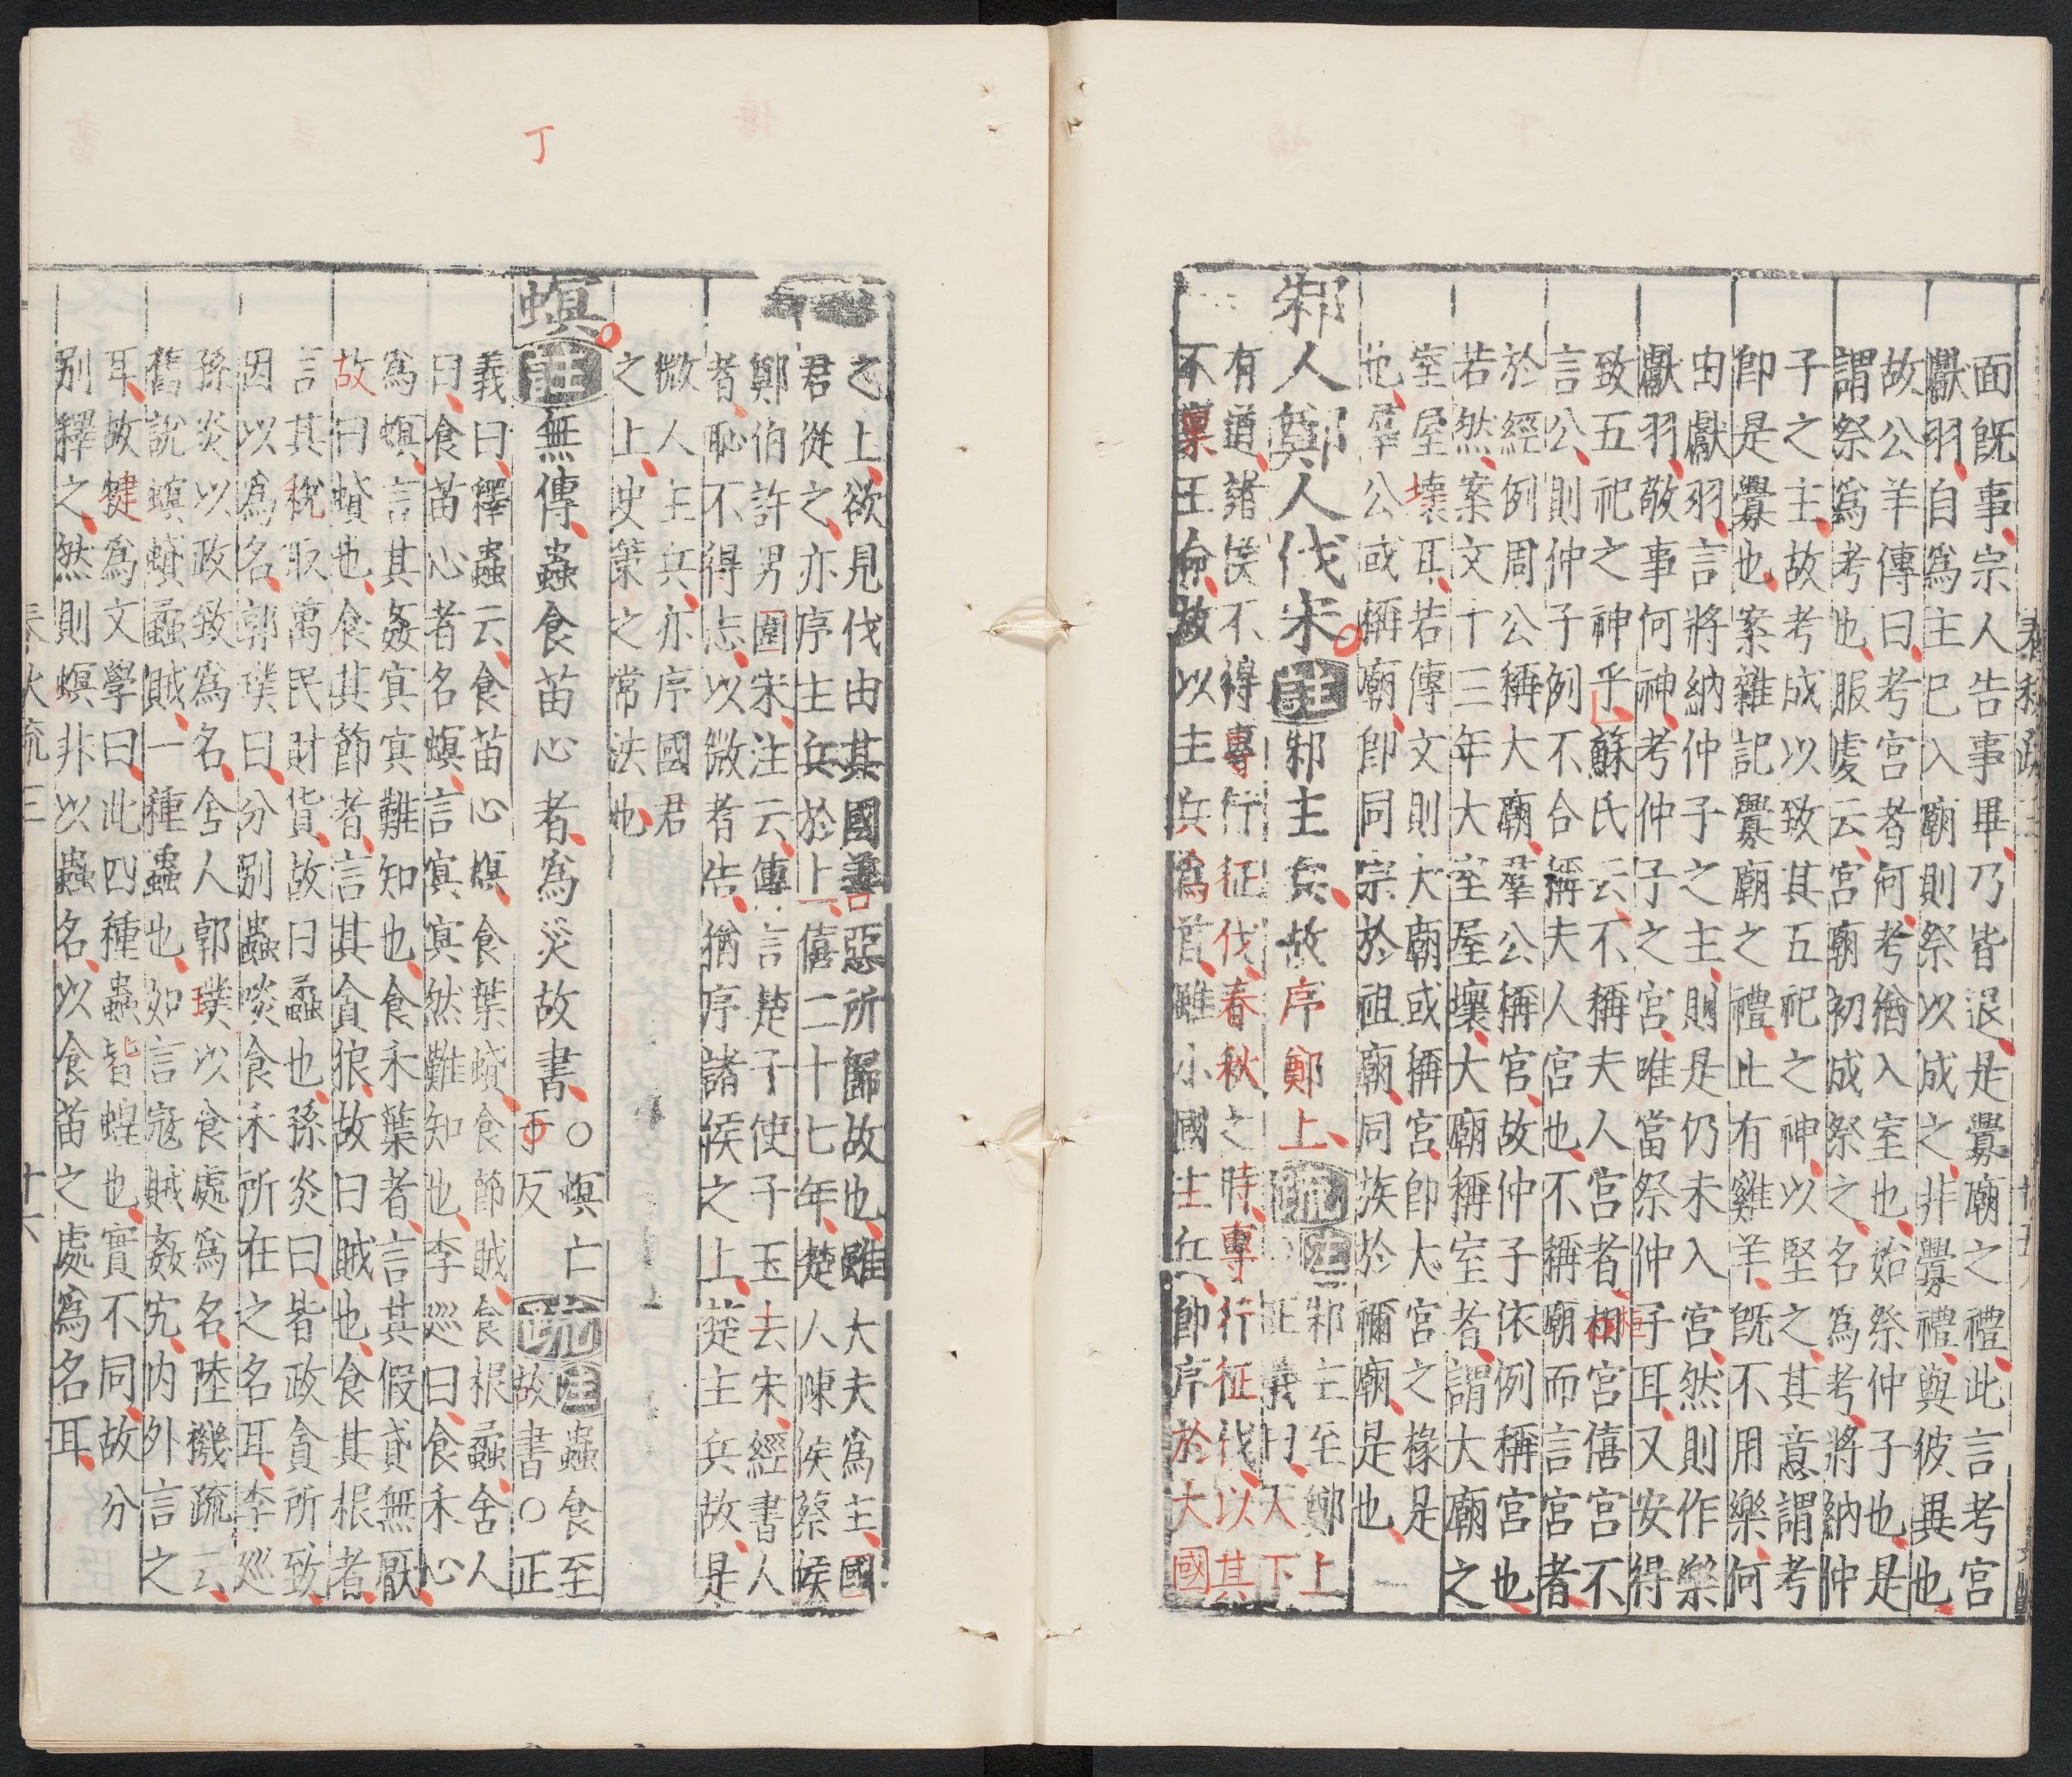 面旣事宗人告事畢乃皆退是釁廟之禮此言考宮
獻羽自爲主已入廟則祭以成之非釁禮與彼異也
故公羊傳曰考宮者何考猶入室也始祭仲子也是
謂祭爲考也服虔云宮廟初成祭之名爲考將納仲
子之主故考成以致其五祀之神以堅之其意謂考
卽是釁也案雜記釁廟之禮止有雞羊旣不用樂何
由獻羽言將納仲子之主則是仍未入宮然則作樂
獻羽敬事何神考仲子之宮唯當祭仲子耳又安得
致五祀之神乎蘇氏云不稱夫人宮者桓宮僖宮不
言公則仲子例不合稱夫人宮也不稱廟而言宮者
於經例周公稱大廟羣公稱宮故仲子依例稱宮也
若然案文十三年大室屋壞大廟稱室者謂大廟之
室屋壞耳若傳文則大廟或稱宮卽大宮之椽是
也羣公或稱廟卽同宗於祖廟同族於禰廟是也
邾人鄭人伐宋註邾主兵故序鄭上疏注邾主至鄭上
正義曰天下
有道諸侯不得專行征伐春秋之時專行征伐以其
不稟王命故以主兵爲首雖小國主兵卽序於大國
春秋疏三
十五
之上欲見伐由其國善惡所歸故也雖大夫爲主國
君從之亦序主兵於上僖二十七年楚人陳侯蔡侯
鄭伯許男圍宋注云傳言楚子使子玉去宋經書人
者恥不得志以微者告猶序諸侯之上楚主兵故是
微人主兵亦序國君
之上史策之常法也
螟註無傳蟲食苗心者爲災故書○螟亡
丁反
疏注蟲食至
故書○正
義曰釋蟲云食苗心螟食葉蟘食節賊食根蟊舍人
曰食苗心者名螟言冥冥然難知也李巡曰食禾心
爲螟言其姦冥冥難知也食禾葉者言其假貸無厭
故曰蟘也食其節者言其貪狼故曰賊也食其根者
言其稅取萬民財貨故曰蟊也孫炎曰皆政貪所致
因以爲名郭璞曰分别蟲啖食禾所在之名耳李巡
孫炎以政致爲名舍人郭璞以食處爲名陸機疏云
舊說螟蟘蟊賊一種蟲也如言寇賊姦宄內外言之
耳故犍爲文學曰此四種蟲皆蝗也實不同故分
别釋之然則螟非以蟲名以食苗之處爲名耳
春秋疏三
十六
丁